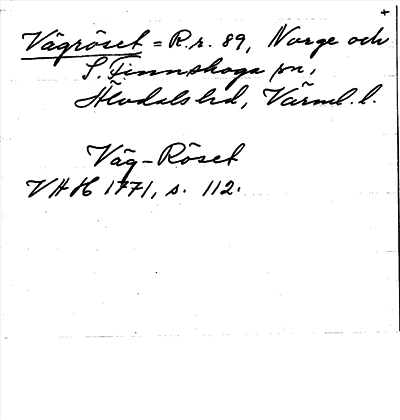 +
Vägröset = R.r. 89, Norge och
S. Finnskoga sn,
Älvdals hd, Värml. l.
Väg-Röset
VHH 1771, s. 112.